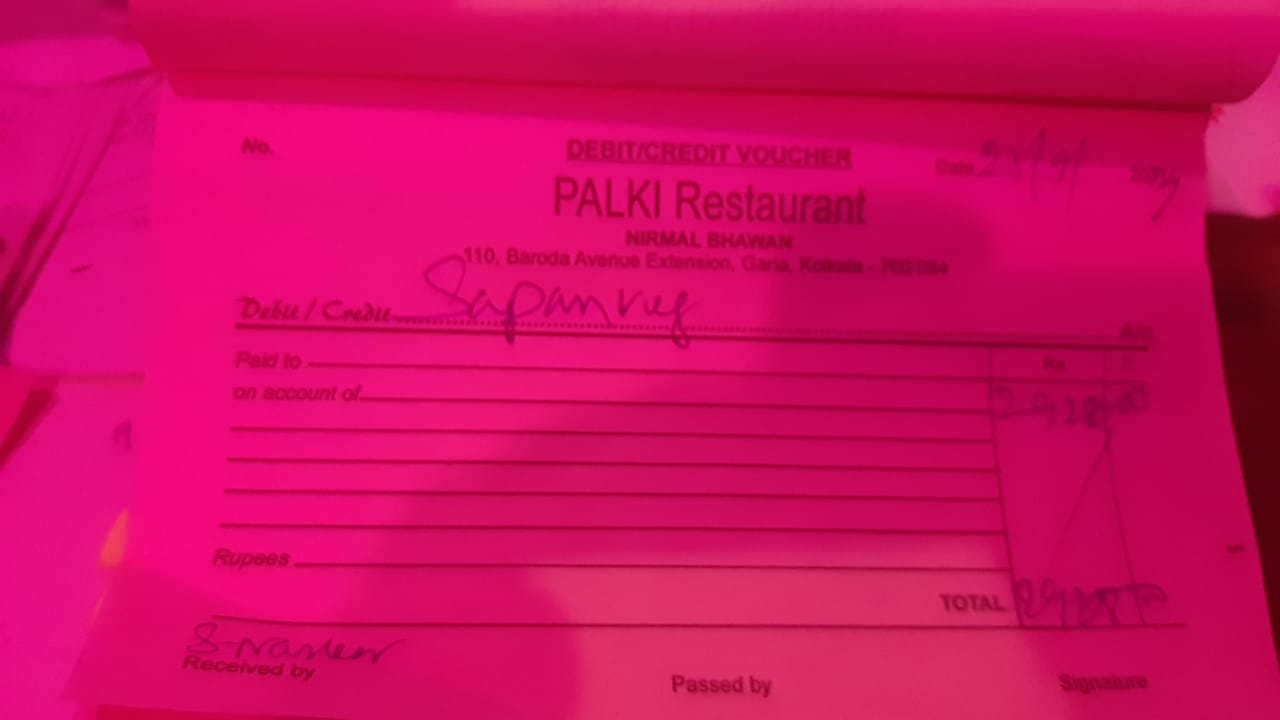 No.
DEBIT/CREDIT VOUCHER
Date
PALKI Restaurant
NIRMAL BHAWAN
110, Baroda Avenue Extension, Garia, Kolkata - 700 084
Debit / Credit Sapan veg A/c
Paid to Rs. P.
on account of
Rupees
TOTAL
S. Naskar
Received by
Passed by
Signature